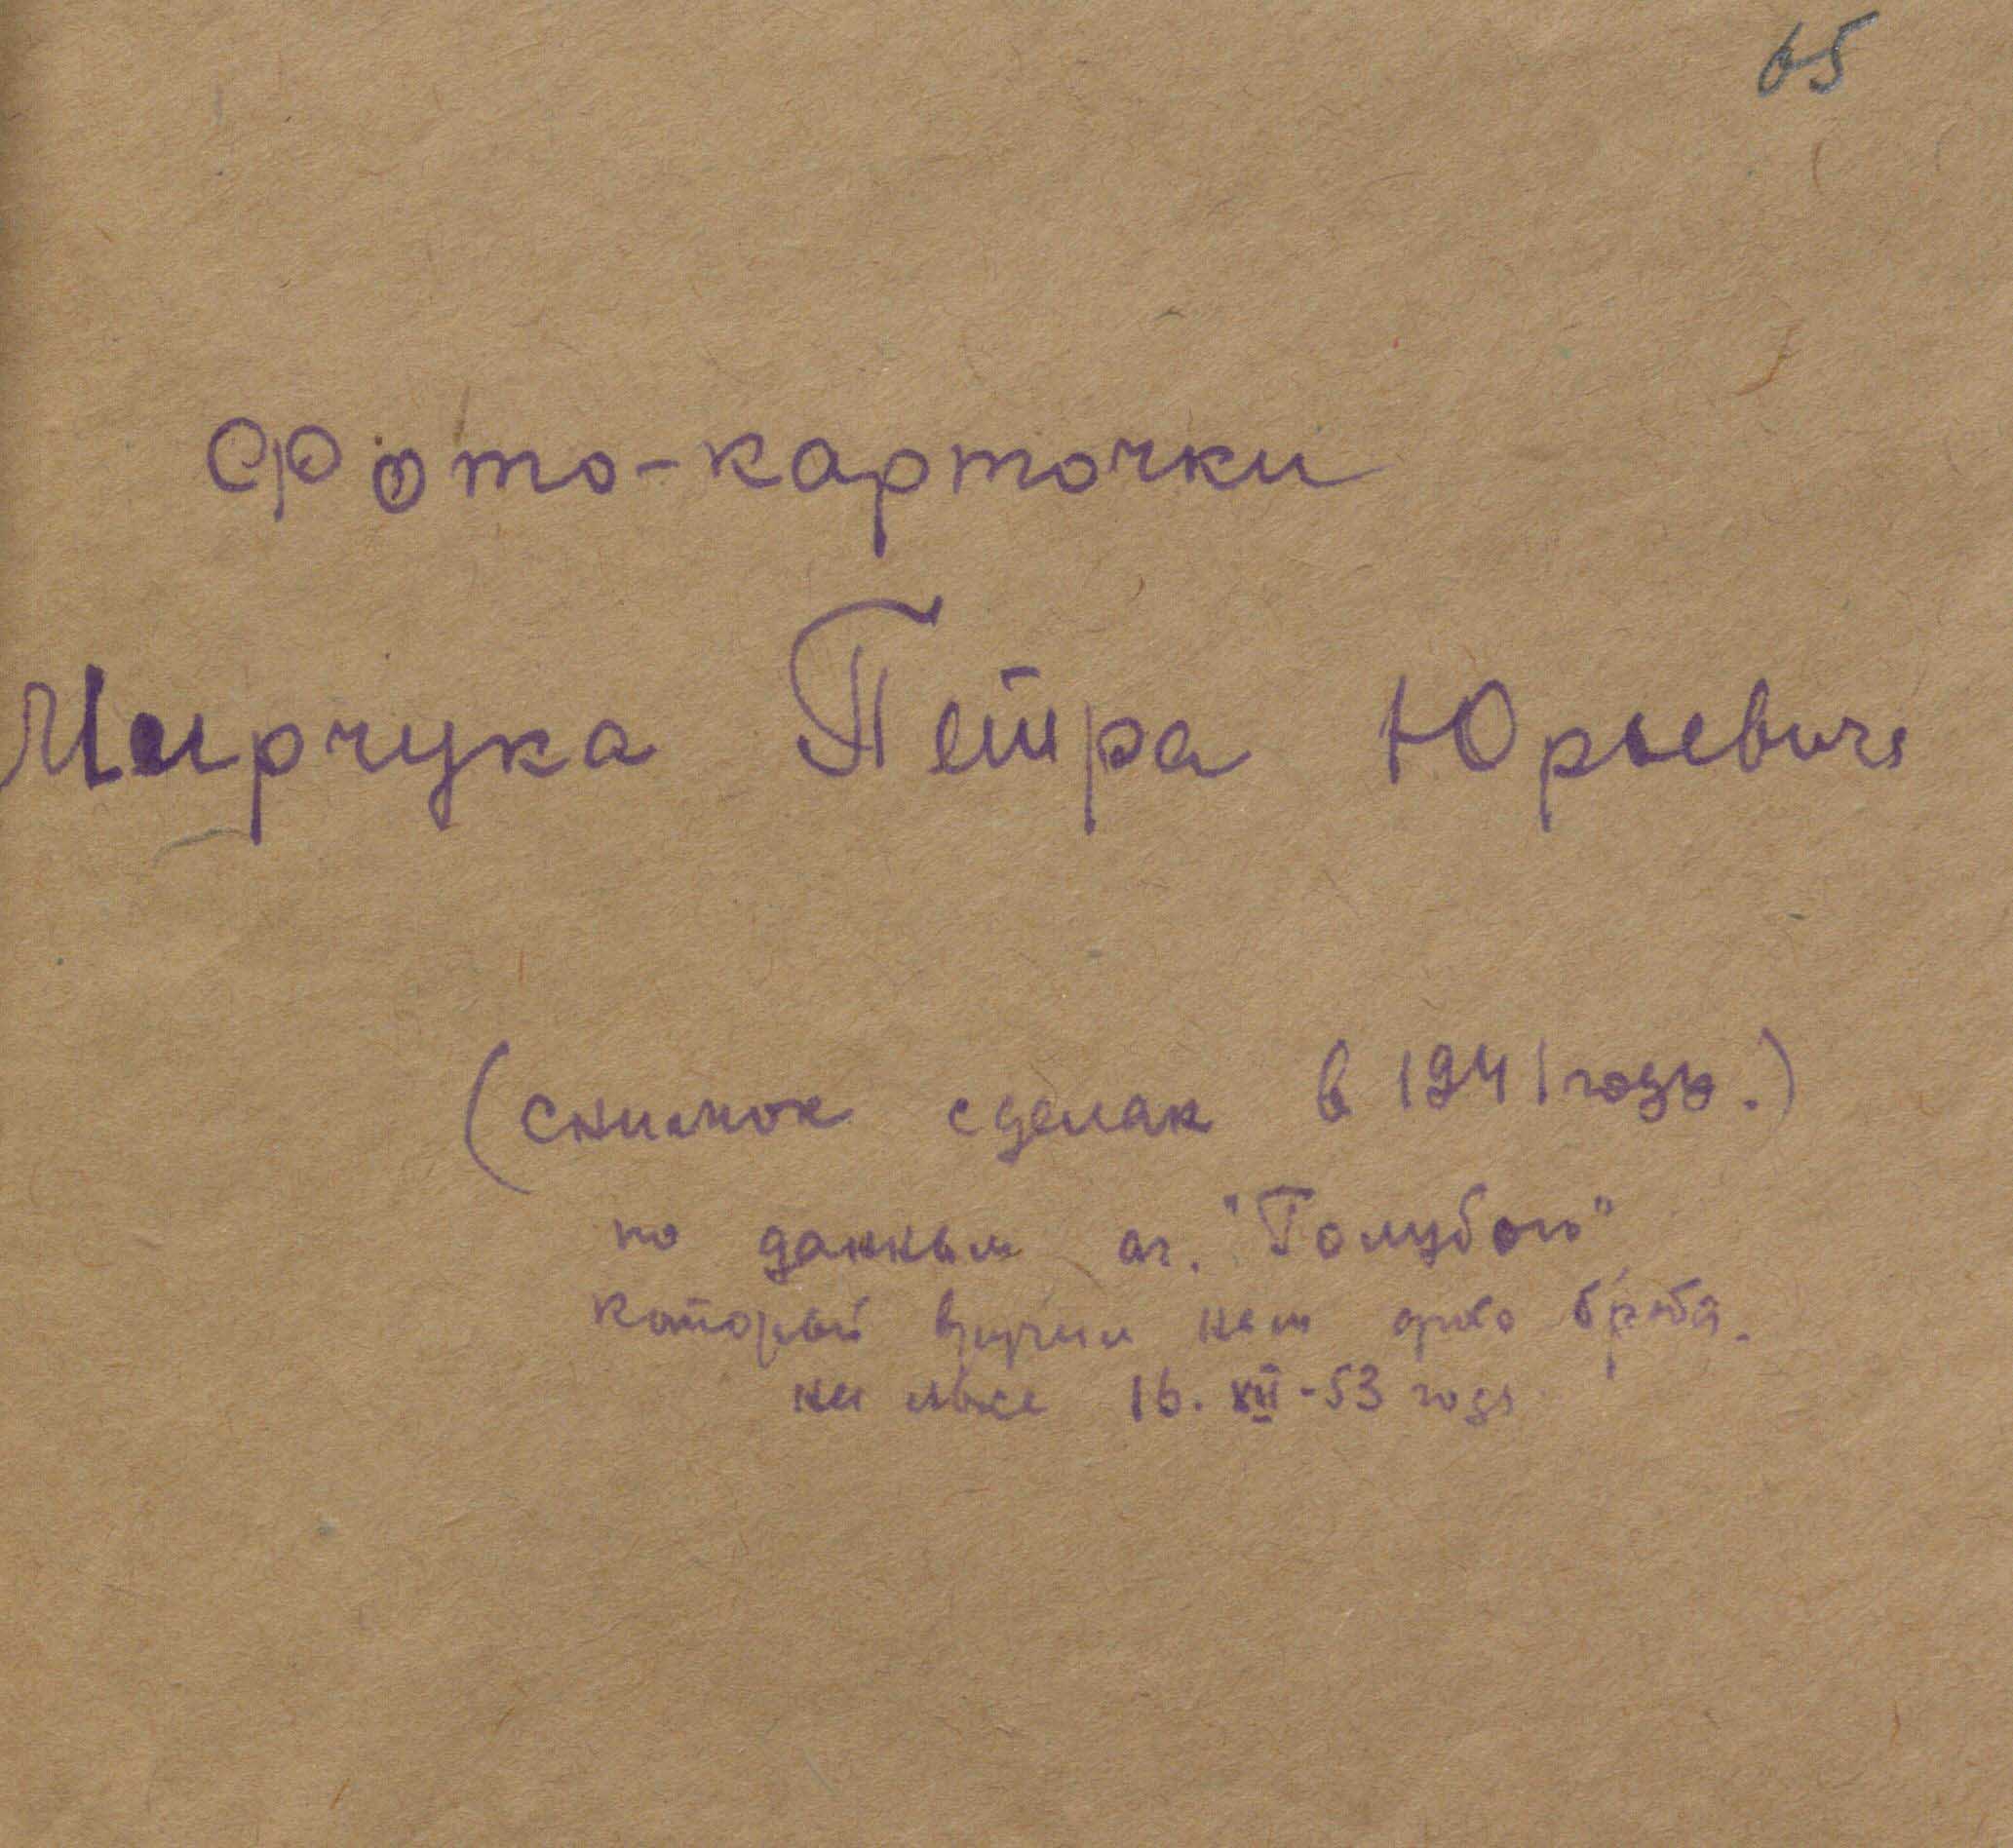 65
Фото-карточки
Мирчука Петра Юрьевича
(снимок сделан в 1941 году.)
по данным аг. "Голубого"
который вручил нам фото
на явке 16. XII-53 года